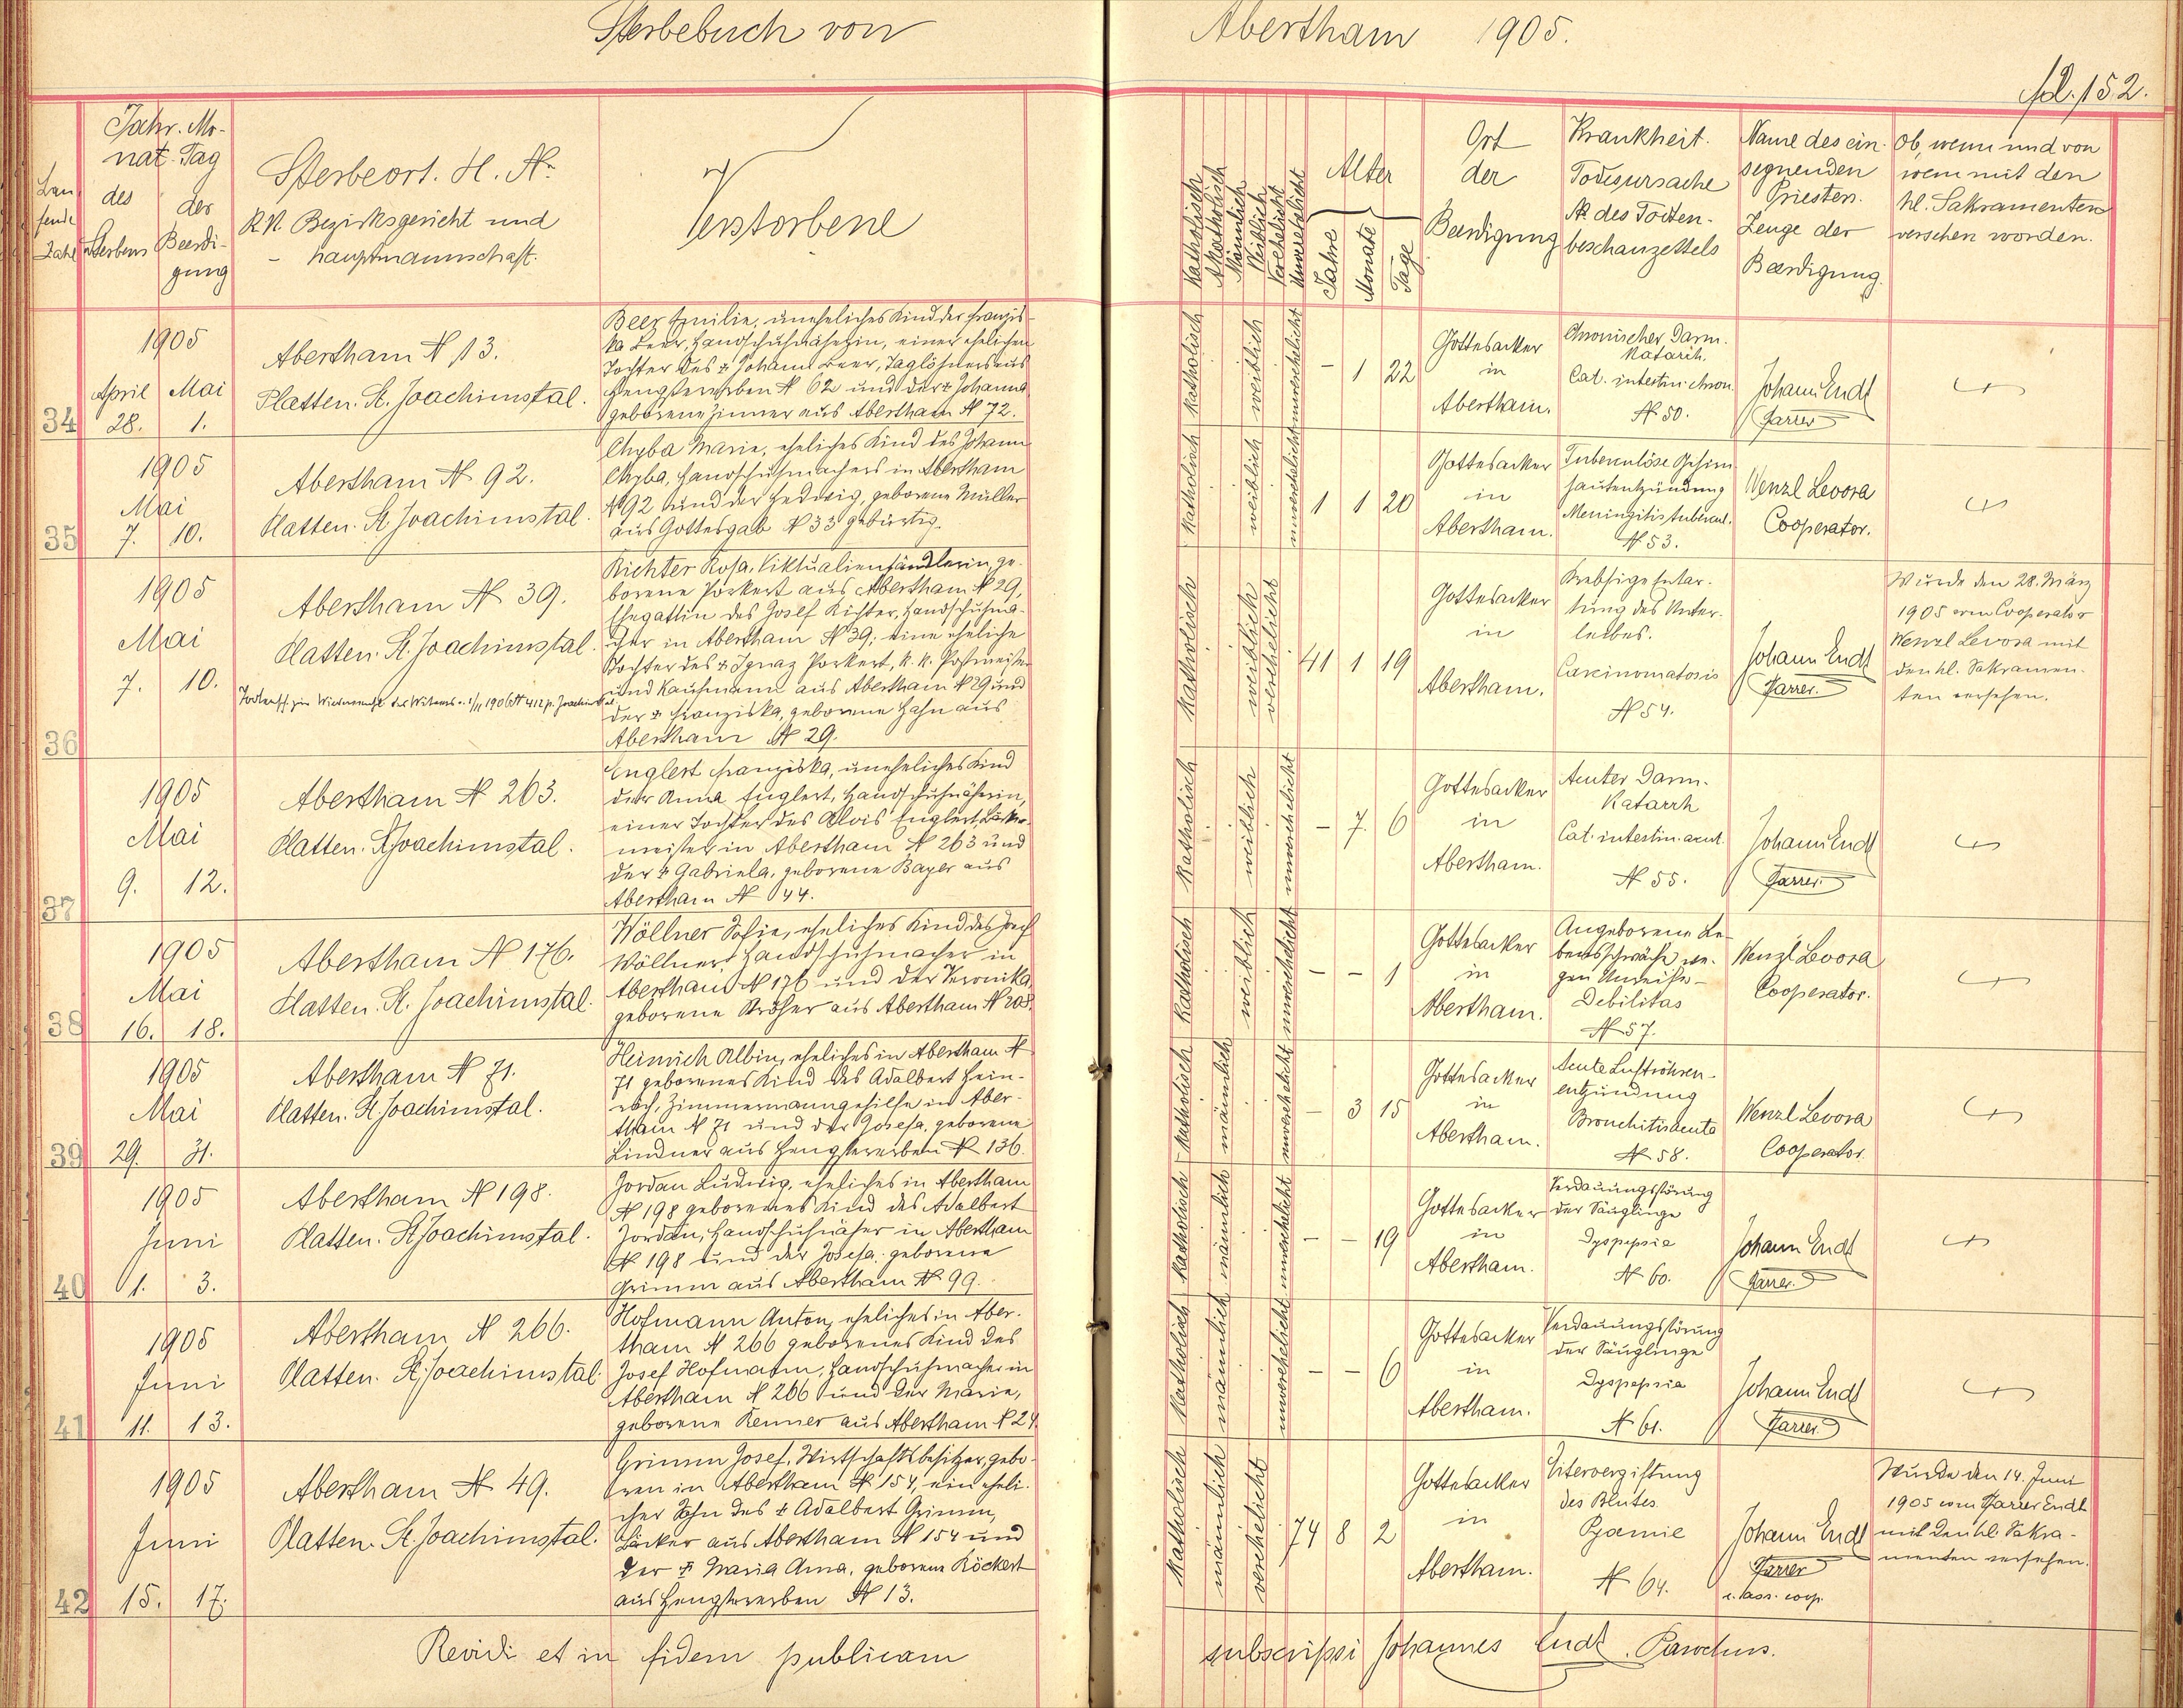 Sterbebuch von Abertham 1905.
fol. 152.
Laufende Zahl
Jahr. Mo-
nat. Tag
des Sterbens
der Beerdi-
gung
Sterbeort. H. №
K.K. Bezirksgericht und
- hauptmannschaft.
Verstorbene
Katholisch
Akatholisch
Männlich
Weiblich
Verehelicht
Unverehelicht
Alter
Jahre
Monate
Tage
Ort
der
Beerdigung
Krankheit.
Todesursache
№ des Todten-
beschauzettels
Name des ein-
segnenden
Priesters.
Zeuge der
Beerdigung.
Ob, wenn und von
wem mit den
hl. Sakramenten
versehen worden.
34
1905
April Mai
28. 1.
Abertham № 13.
Platten. St. Joachimstal.
Beer Emilie, uneheliches Kind der Franzis-
ka Beer, Handschuhnäherin, einer ehelichen
Tochter des + Johann Beer, Taglöhners aus
Hengstererben № 62 und der + Johanna
geborene Zinner aus Abertham № 72.
katholisch
weiblich
unverehelicht
- 1 22
Gottesacker
in
Abertham.
Chronischer Darm-
katarrh.
Cat. intestin. chron.
№ 50.
Johann Endt
Pfarrer
35
1905
Mai
7. 10.
Abertham № 92.
Platten. St. Joachimstal.
Chyba Marie, eheliches Kind des Johann
Chyba, Handschuhmachers in Abertham
№ 92 und der Hedwig, geborene Müller
aus Gottesgab № 33 gebürtig.
katholisch
weiblich
unverehelicht
1 1 20
Gottesacker
in
Abertham.
Tuberculöse Gehirn-
hautentzündung
Meningitis tubercul.
№ 53.
Wenzl Levora
Cooperator.
36
1905
Mai
7. 10.
Abertham № 39.
Platten. St. Joachimstal.
Richter Rosa, Viktualienhändlerin, ge-
borene Porkert aus Abertham № 29,
Ehegattin des Josef Richter, Handschuhma-
cher in Abertham № 39; eine eheliche
Tochter des + Ignaz Porkert, k. k. Postmeister
und Kaufmann aus Abertham № 29 und
der + Franziska, geborene Hahn aus
Abertham № 29.
katholisch
weiblich
verehelicht
41 1 19
Gottesacker
in
Abertham.
Krebsige Entar-
tung des Unter-
leibes.
Carcinomatosis
№ 54.
Johann Endt
Pfarrer.
Wurde den 28. März
1905 vom Cooperator
Wenzl Levora mit
den hl. Sakramen-
ten versehen.
37
1905
Mai
9. 12.
Abertham № 263.
Platten. St. Joachimstal.
Englert Franziska, uneheliches Kind
der Anna Englert, Handschuhnäherin,
einer Tochter des Alois Englert, Bäcker-
meister in Abertham № 263 und
der + Gabriela, geborene Bayer aus
Abertham № 44.
katholisch
weiblich
unverehelicht
- 7. 6
Gottesacker
in
Abertham.
Acuter Darm-
katarrh
Cat. intestin. acut.
№ 55.
Johann Endt
Pfarrer.
38
1905
Mai
16. 18.
Abertham № 176.
Platten. St. Joachimstal.
Wöllner Sofie, eheliches Kind des Josef
Wöllner, Handschuhmacher in
Abertham № 176 und der Veronika,
geborene Ströher aus Abertham № 208.
katholisch
weiblich
unverehelicht
- - 1
Gottesacker
in
Abertham.
Angeborene Le-
bensschwäche we-
gen Unreife -
Debilitas
№ 57.
Wenzl Levora
Cooperator.
39
1905
Mai
29. 31.
Abertham № 71.
Platten. St. Joachimstal.
Heinrich Albin, eheliches in Abertham №
71 geborenes Kind des Adalbert Hein-
rich, Zimmermanngehilfe in Aber-
tham № 71 und der Josefa, geborene
Lindner aus Hengstererben № 136.
katholisch
männlich
unverehelicht
- 3 15
Gottesacker
in
Abertham.
Acute Luftröhren-
entzündung
Bronchitis acuta
№ 58.
Wenzl Levora
Cooperator.
40
1905
Juni
1. 3.
Abertham № 198.
Platten. St. Joachimstal.
Jordan Ludwig, eheliches in Abertham
№ 198 geborenes Kind des Adalbert
Jordan, Handschuhnäher in Abertham
№ 198 und der Josefa, geborene
Grimm aus Abertham № 99.
katholisch
männlich
unverehelicht
- - 19
Gottesacker
in
Abertham.
Verdauungsstörung
der Säuglinge
Dyspepsia
№ 60.
Johann Endt
Pfarrer.
41
1905
Juni
11. 13.
Abertham № 266.
Platten. St. Joachimstal.
Hofmann Anton, eheliches in Aber-
tham № 266 geborenes Kind des
Josef Hofmann, Handschuhmacher in
Abertham № 266 und der Marie,
geborene Renner aus Abertham № 24.
katholisch
männlich
unverehelicht
- - 6
Gottesacker
in
Abertham.
Verdauungsstörung
der Säuglinge
Dyspepsia
№ 61.
Johann Endt
Pfarrer.
42
1905
Juni
15. 17.
Abertham № 49.
Platten. St. Joachimstal.
Grimm Josef, Wirtschaftsbesitzer, gebo-
ren in Abertham № 154, ein eheli-
cher Sohn des + Adalbert Grimm,
Bäcker aus Abertham № 154 und
der + Maria Anna, geborene Röckert
aus Hengstererben № 13.
katholisch
männlich
verehelicht
74 8 2
Gottesacker
in
Abertham.
Eitervergiftung
des Blutes
Pyaemie
№ 64.
Johann Endt
Pfarrer
Wurde den 14. Juni
1905 vom Pfarrer Endt
mit den hl. Sakra-
menten versehen.
Revidi et in fidem publicam subscripsi Johannes Endt. Parochus.